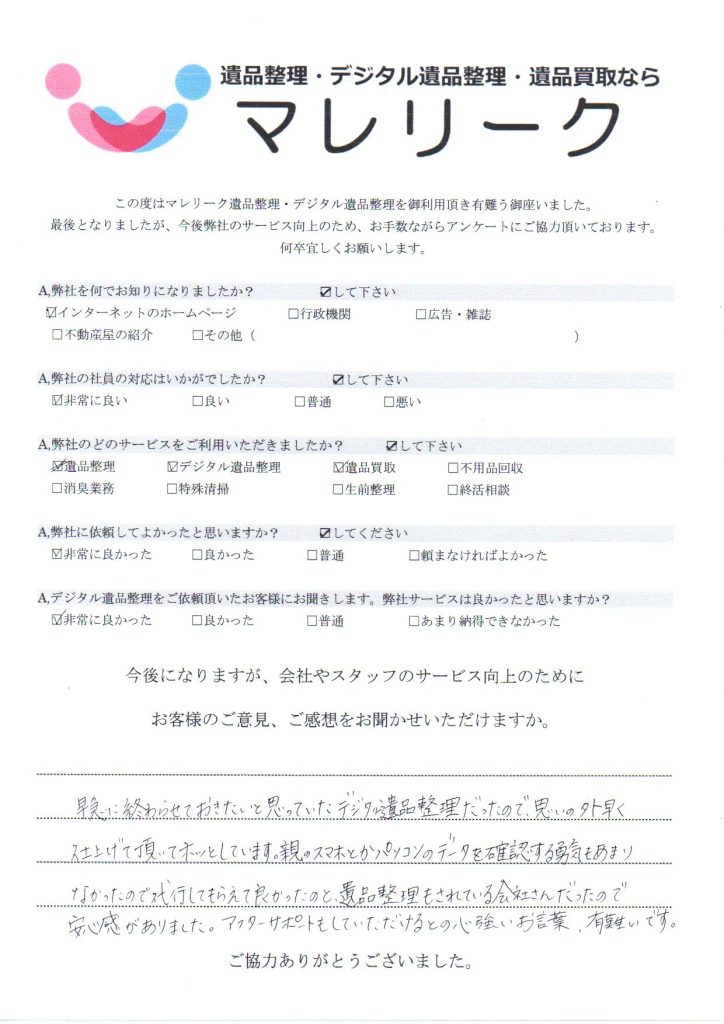 遺品整理・デジタル遺品整理・遺品買取なら
マレリーク
この度はマレリーク遺品整理・デジタル遺品整理を御利用頂き有難う御座いました。
最後となりましたが、今後弊社のサービス向上のため、お手数ながらアンケートにご協力頂いております。
何卒宜しくお願いします。
A,弊社を何でお知りになりましたか? ☑して下さい
☑インターネットのホームページ □行政機関 □広告・雑誌
□不動産屋の紹介 □その他 ( )
A,弊社の社員の対応はいかがでしたか? ☑して下さい
☑非常に良い □良い □普通 □悪い
A,弊社のどのサービスをご利用いただきましたか? ☑して下さい
☑遺品整理 ☑デジタル遺品整理 ☑遺品買取 □不用品回収
□消臭業務 □特殊清掃 □生前整理 □終活相談
A,弊社に依頼してよかったと思いますか? ☑してください
☑非常に良かった □良かった □普通 □頼まなければよかった
A,デジタル遺品整理をご依頼頂いたお客様にお聞きします。弊社サービスは良かったと思いますか?
☑非常に良かった □良かった □普通 □あまり納得できなかった
今後になりますが、会社やスタッフのサービス向上のために
お客様のご意見、ご感想をお聞かせいただけますか。
早急に終わらせておきたいと思っていたデジタル遺品整理だったので、思いの外早く
仕上げて頂いてホッとしています。親のスマホとかパソコンのデータを確認する勇気もあまり
なかったので代行してもらえて良かったのと、遺品整理もされている会社さんだったので
安心感がありました。アフターサポートもしていただけるとの心強いお言葉、有難いです。
ご協力ありがとうございました。